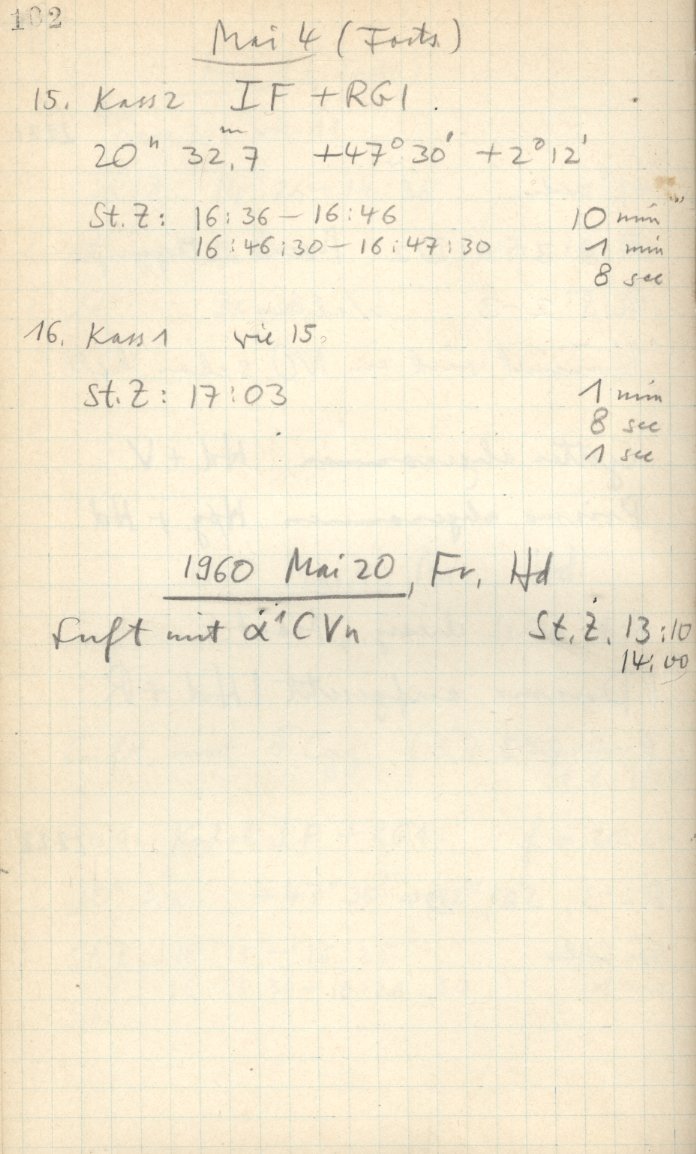 102
Mai 4 (Forts.)
15. Kass 2 IF + RG1.
20ʰ 32ᵐ,7 +47° 30' +2° 12'
St. Z: 16:36 – 16:46 10 min
16:46:30 – 16:47:30 1 min
8 sec
16. Kass 1 wie 15.
St. Z: 17:03 1 min
8 sec
1 sec
1960 Mai 20, Fr, Hd
Luft mit α¹ CVn St. Z. 13:10
14:00